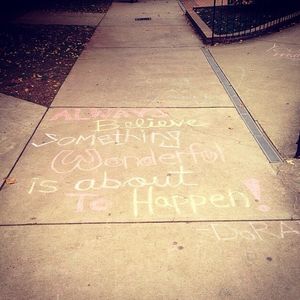 ALWAYS
Believe
SOMEthing
Wonderful
is about
To Happen!
-DORA